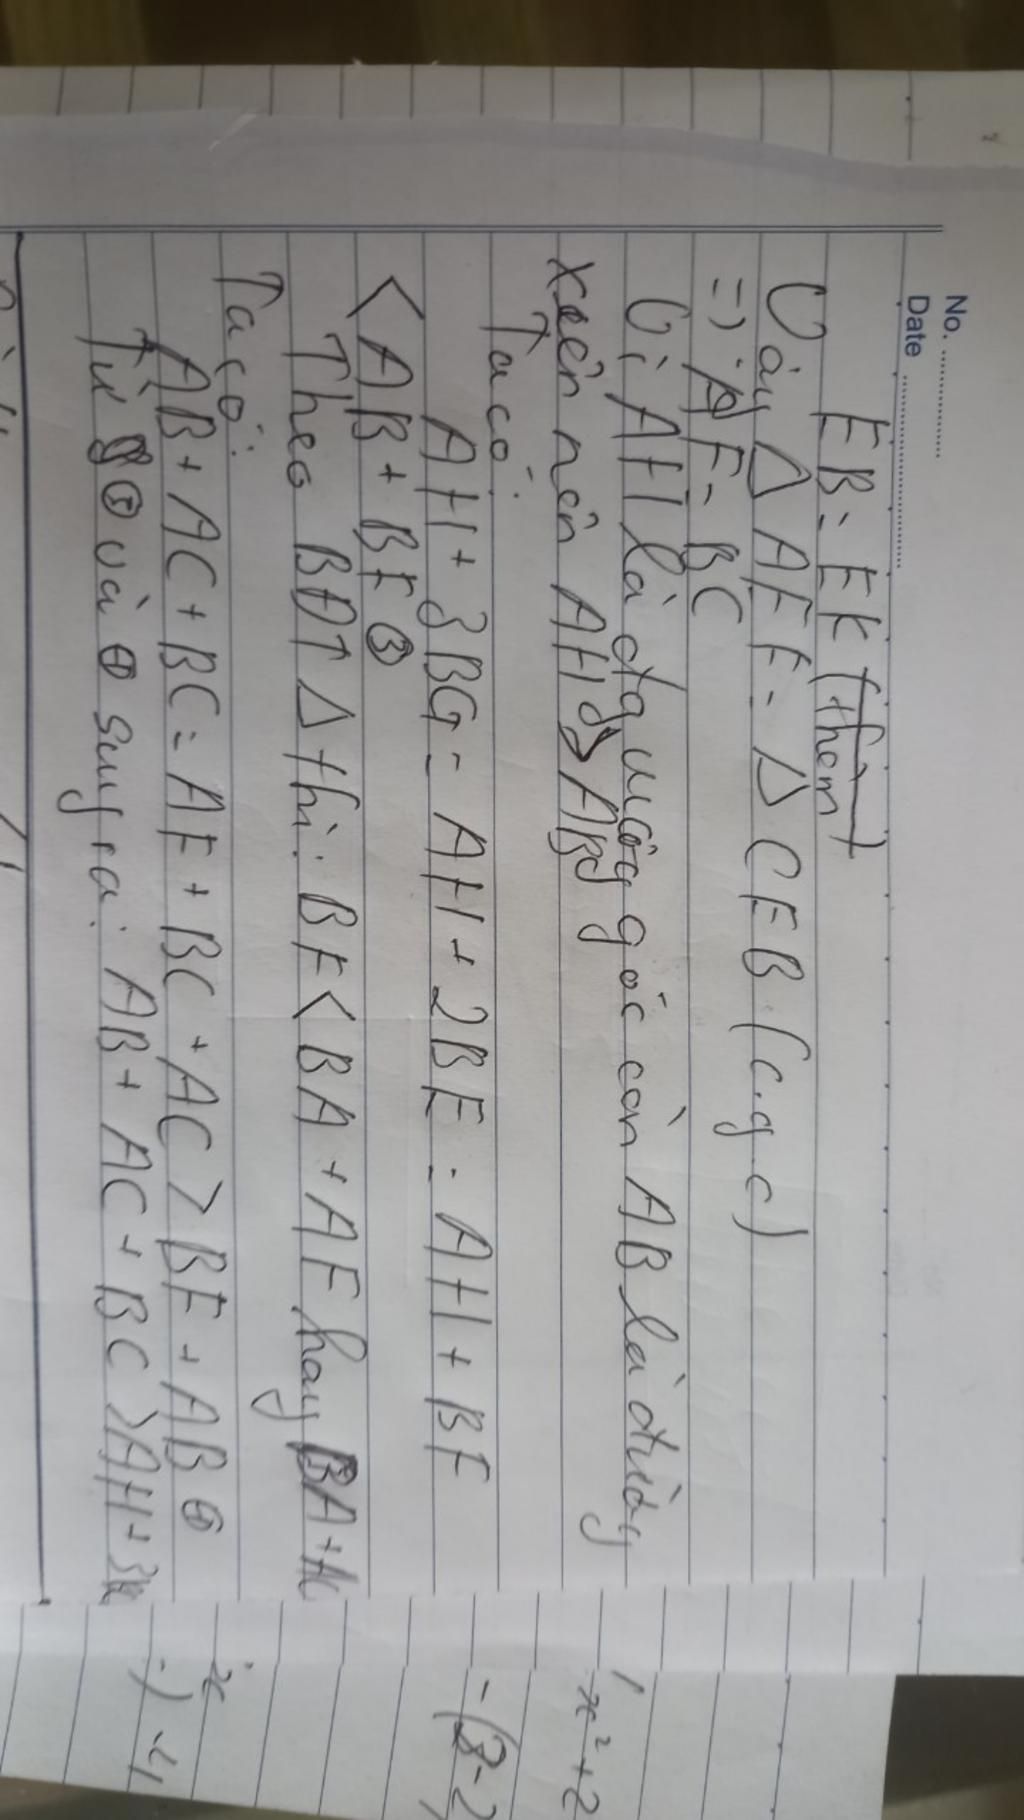 No. ....................
Date ....................
EB = EK (thêm)
Vậy Δ AEF = Δ CEB (c.g.c)
=) AF = BC
Vì AH là đg vuông góc còn AB là đường
xiên nên AH AB
Ta có:
AH + 3BG = AH + 2BE = AH + BF
< AB + BF ③
Theo BĐT Δ thì: BF < BA + AF hay BA +
Ta có:
AB + AC + BC = AF + BC + AC > BF + AB ④
Từ ③ và ④ suy ra: AB + AC + BC > AH + 3
x² + 2
-(3 - 2
x
-) -4